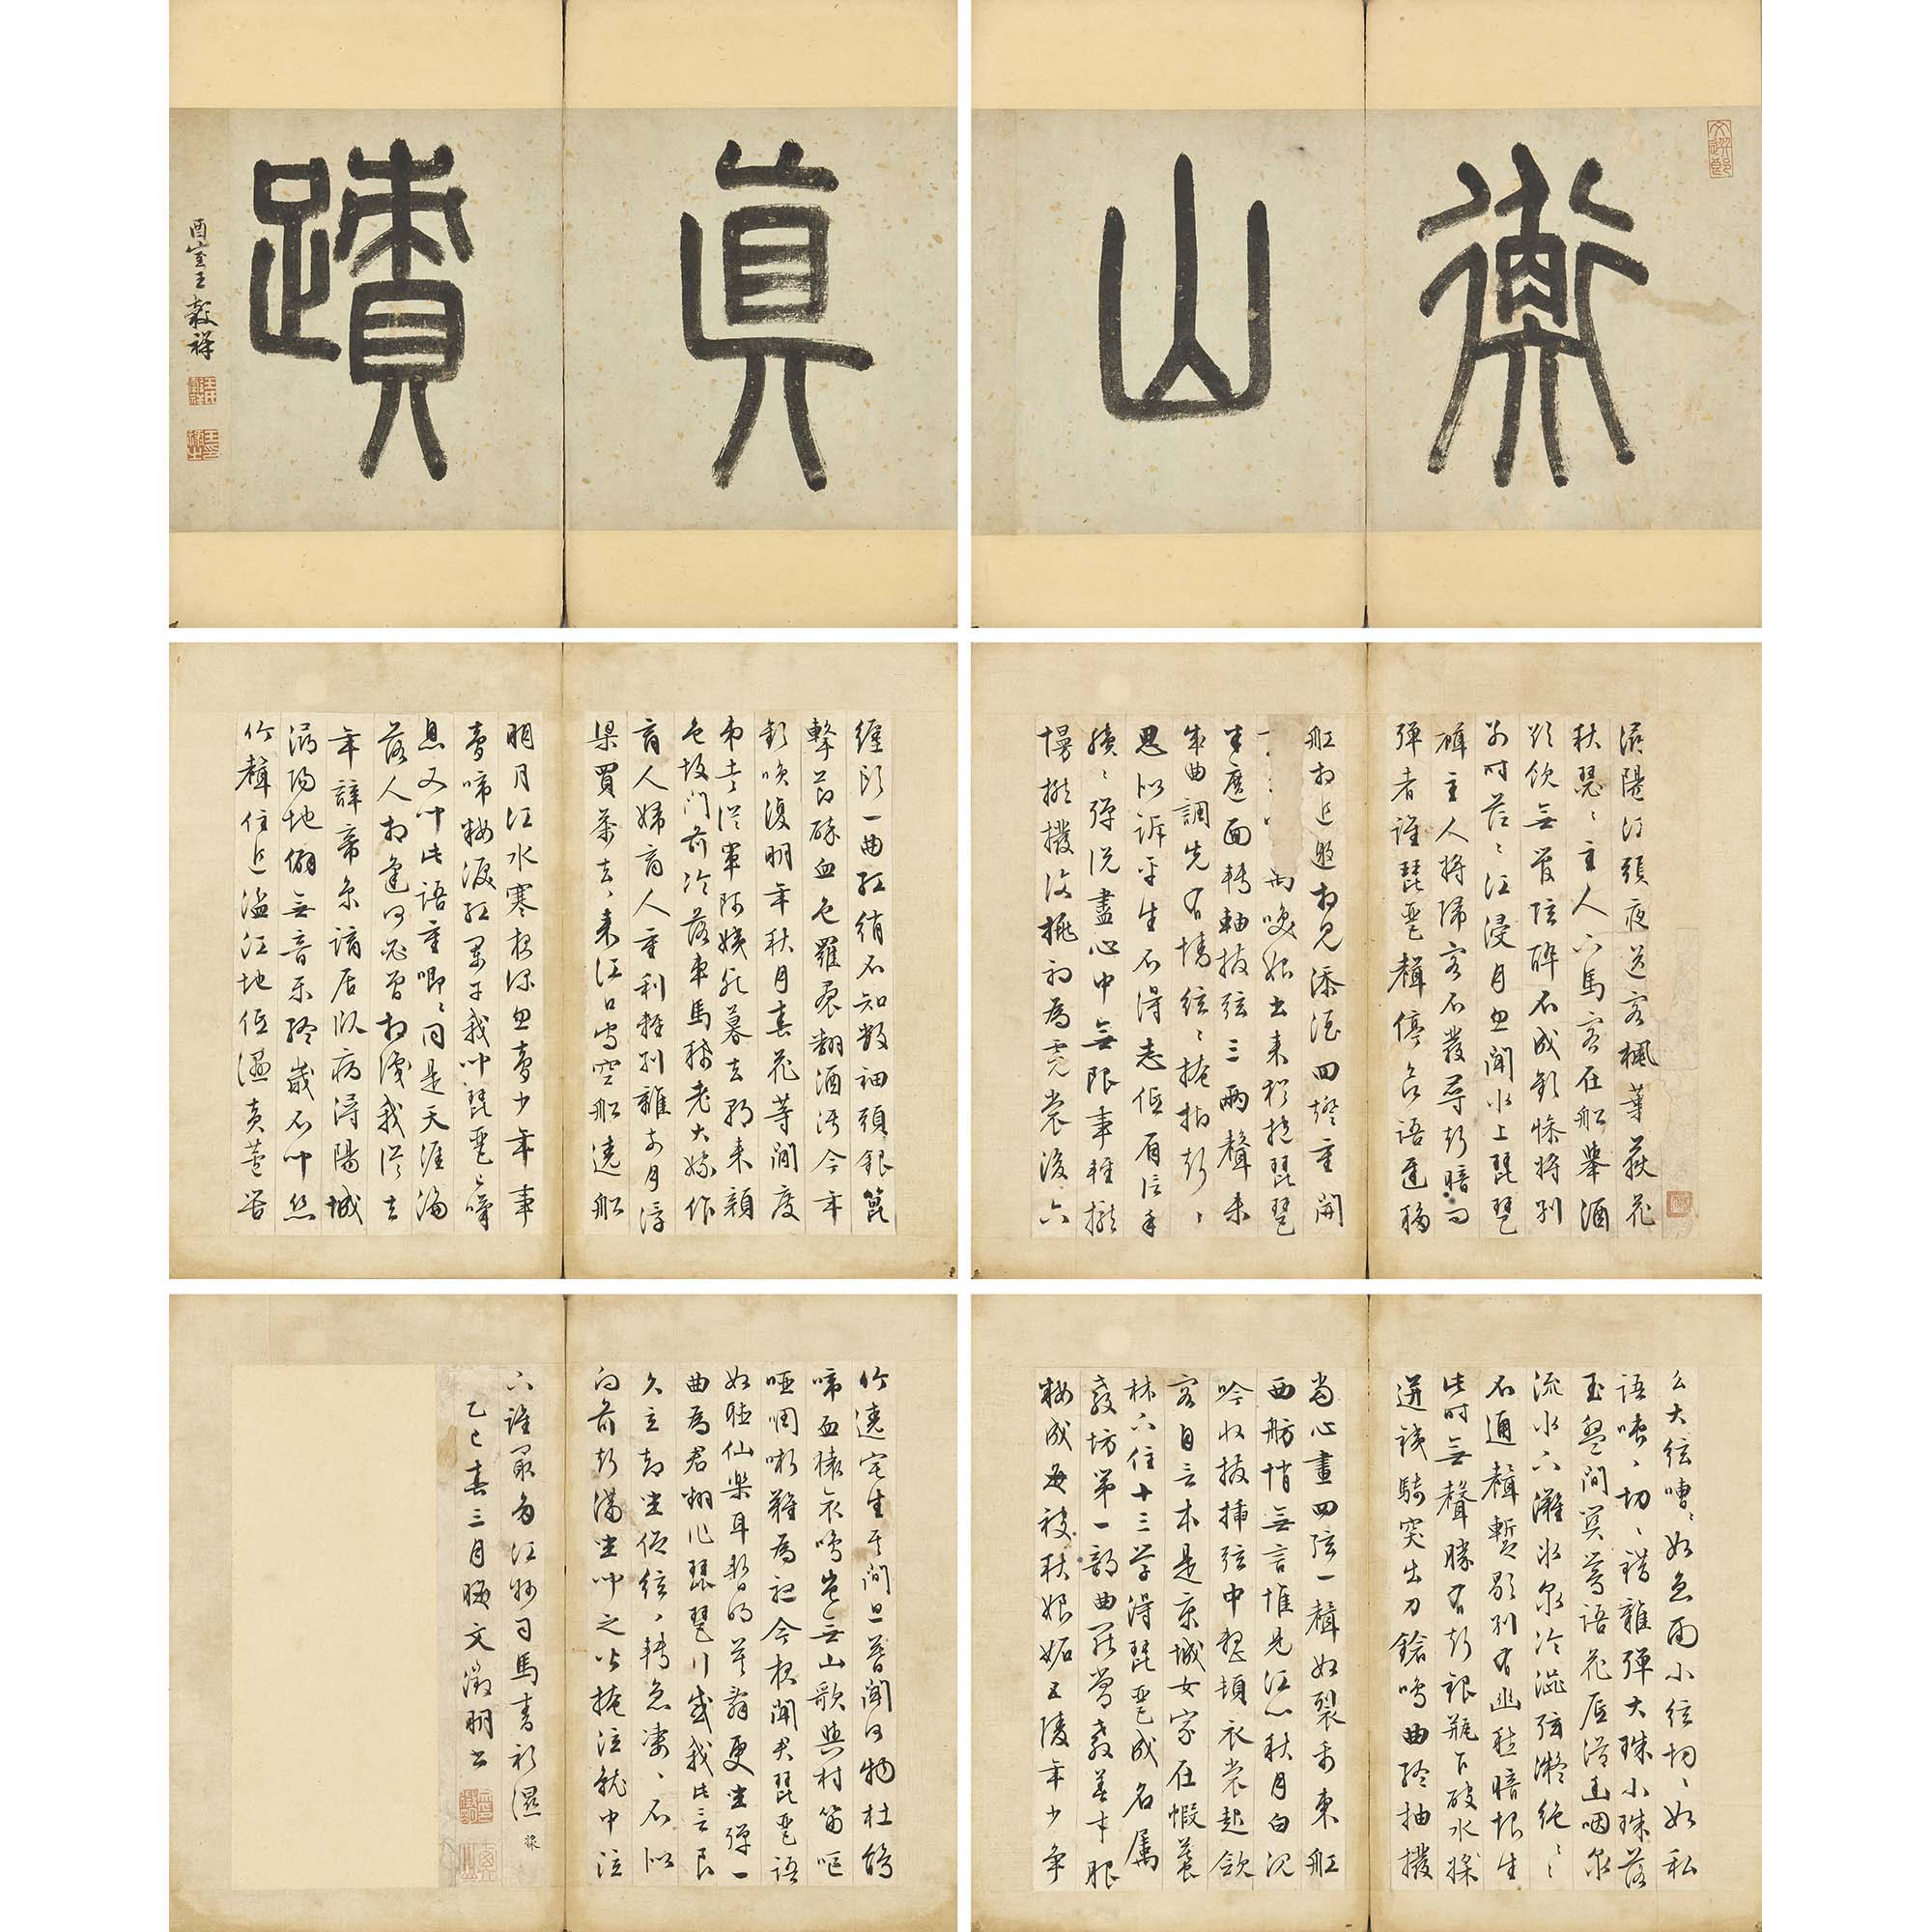 衡
山
眞
蹟
酉室王榖祥
潯陽江頭夜送客楓葉荻花
秋瑟〻主人下馬客在船舉酒
欲飲無管絃醉不成歡慘將別
別時茫〻江浸月忽聞水上琵琶
聲主人將歸客不發尋聲暗問
彈者誰琵琶聲停欲語遲移
船相近邀相見添酒回燈重開
喚始出來猶抱琵琶
半遮面轉軸撥弦三兩聲未
成曲調先有情絃〻掩抑聲〻
思似訴平生不得志低眉信手
續〻彈說盡心中無限事輕攏
慢撚撥復挑初為霓裳後六
么大絃嘈〻如急雨小絃切〻如私
語嘈〻切〻錯雜彈大珠小珠落
玉盤間關鶯語花底滑幽咽泉
流水下灘水泉冷澀弦凝絕〻〻
不通聲暫歇別有幽愁暗恨生
此時無聲勝有聲銀瓶乍破水漿
迸鐵騎突出刀鎗鳴曲終抽撥
當心畫四弦一聲如裂帛東船
西舫悄無言惟見江心秋月白沉
吟收撥插弦中整頓衣裳起斂
容自言本是京城女家在蝦蟇
林下住十三學得琵琶成名屬
教坊第一部曲罷曾教善才服
粧成每被秋娘妬五陵年少爭
纏頭一曲紅綃不知數鈿頭銀篦
擊節碎血色羅裙翻酒汚今年
歡笑復明年秋月春花等閒度
弟走從軍阿姨死暮去朝來顏
色故門前冷落車馬稀老大嫁作
商人婦商人重利輕別離前月浮
梁買茶去〻來江口守空船遶船
明月江水寒夜深忽夢少年事
夢啼粧淚紅闌干我聞琵琶已嘆
息又聞此語重唧〻同是天涯淪
落人相逢何必曾相識我從去
年辭帝京謫居臥病潯陽城
潯陽地僻無音樂終歲不聞絲
竹聲住近湓江地低濕黃蘆苦
竹遶宅生其間旦暮聞何物杜鵑
啼血猿哀鳴豈無山歌與村笛嘔
啞啁哳難為聽今夜聞君琵琶語
如聽仙樂耳暫明莫辭更坐彈一
曲為君翻作琵琶行感我此言良
久立卻坐促絃〻轉急淒〻不似
向前聲滿坐聞之皆掩泣就中泣
下誰最多江州司馬青衫濕
乙巳春三月既文徵明書